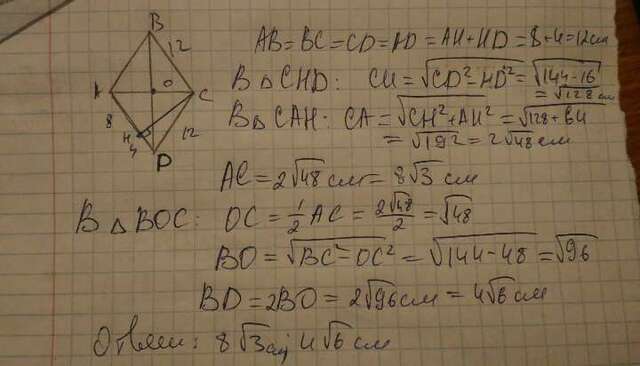 B
12
A
O
C
8
H
4
12
D
AB = BC = CD = AD = AH + HD = 8 + 4 = 12 см
В △ CHD: CH = √CD² - HD² = √144 - 16
= √128 см
В △ CAH: CA = √CH² + AH² = √128 + 64
= √192 = 2√48 см
AC = 2√48 см = 8√3 см
В △ BOC: OC = 1/2 AC = 2√48/2 = √48
BO = √BC² - OC² = √144 - 48 = √96
BD = 2BO = 2√96 см = 4√6 см
Ответ: 8√3 см; 4√6 см